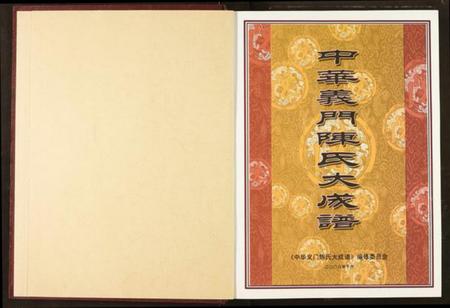 中華義門陳氏大成譜
《中华义门陈氏大成谱》编修委员会